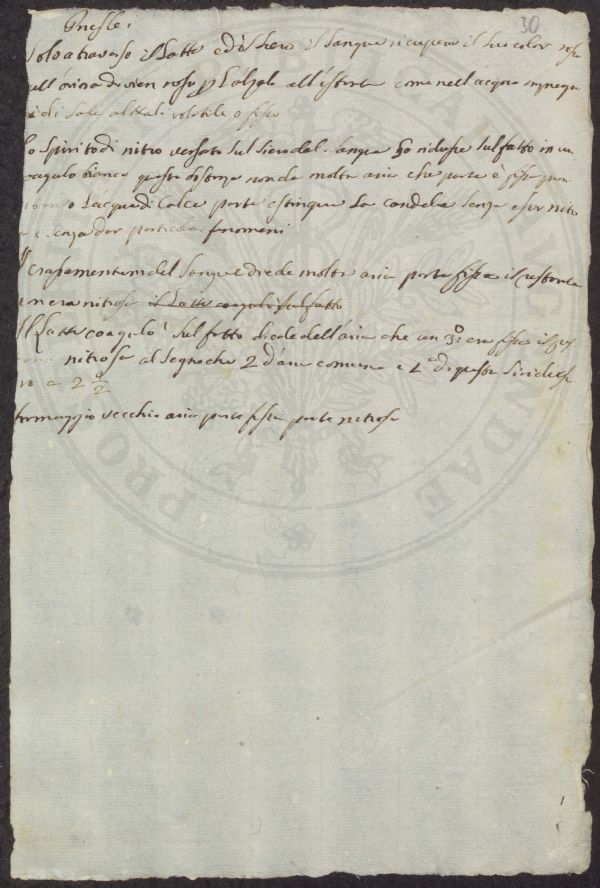 30
Priestley
solo atraverso il latte ed il siero il sangue ricupera il suo color rosso
nell'orina divien rosso p l'alzalo all' come nell'acqua impregna
di sale alkali volatile o fisso
lo spirito di nitro versato sul siero del sangue lo ridusse sul fatto in un
coagulo bianco questa diede molta aria che parte è fissa pre
l'acqua di calce parte estingue la candela senza esser nitro
e senza dar particolari fenomeni
Il crasamentum del sangue diede molta aria parte fissa il restante
era nitroso il latte coagulò sul fatto
Il latte coagulò sul fatto diede dell'aria che un 3º era fissa il
nitrosa al segno che 2 d'aria comune e 1 di questa si ridusse
a 2 1/2
formaggio vecchio aria parte fissa parte nitrosa